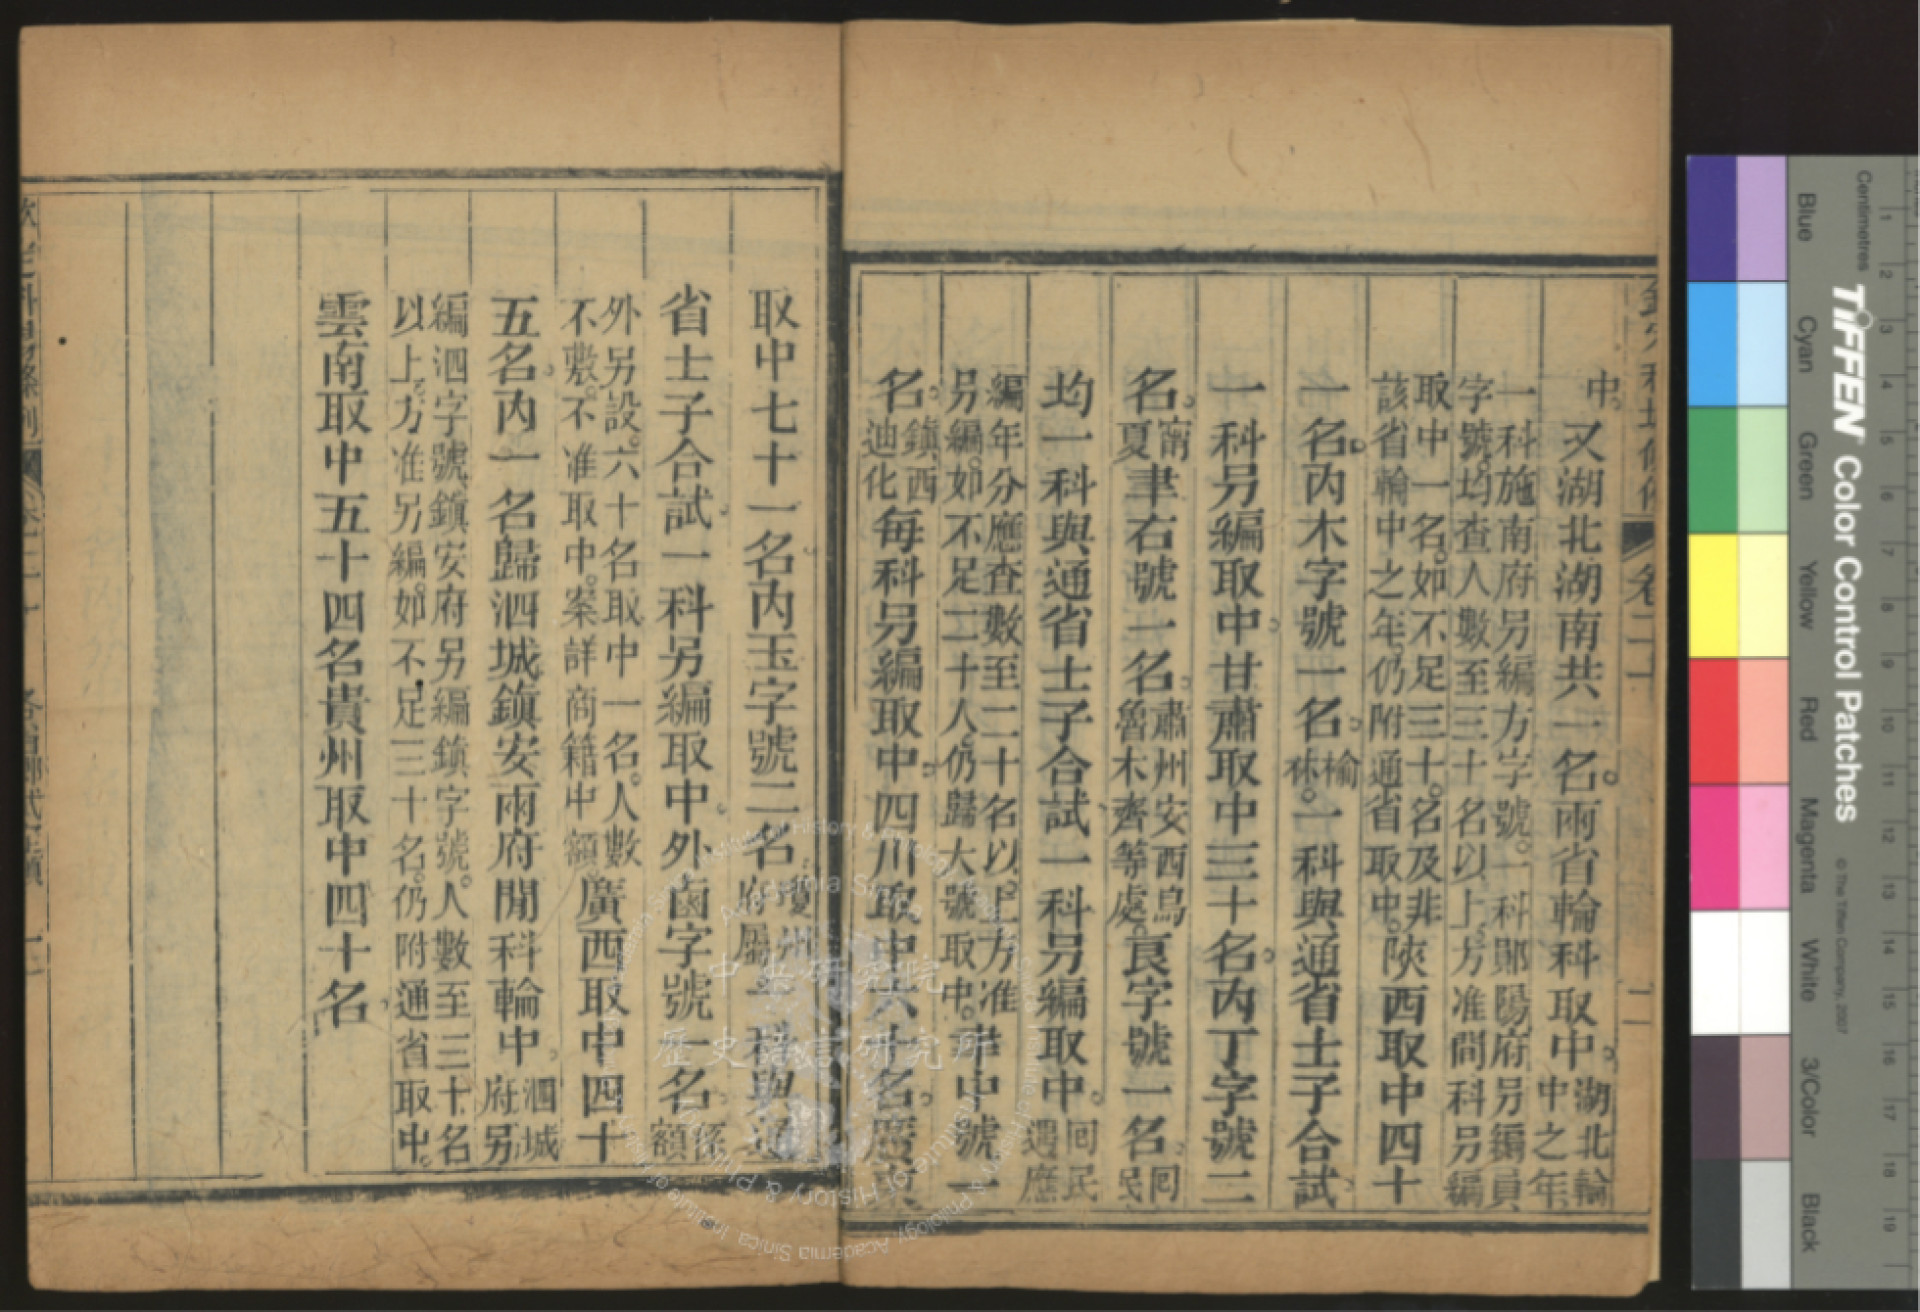 欽定科場條例 卷二十 二
中。又湖北湖南共一名。兩省輪科取中。湖北輪
中之年
一科施南府另編方字號。一科鄖陽府另編員
字號。均查人數至三十名以上。方准間科另編
取中一名。如不足三十。名及非
該省輪中之年。仍附通省取中。陝西取中四十
一名。內木字號一名。榆林。一科與通省士子合試
一科另編取中。甘肅取中三十名。內丁字號二
名。甯夏聿右號一名。肅州安西烏
魯木齊等處。良字號一名。回民
均一科與通省士子合試一科另編取中。回民
遇應
編年分應查數至二十名以上。方准
另編。如不足二十人。仍歸大號取中。聿中號一
名。鎮西
迪化每科另編取中。四川取中六十名。廣東
取中七十一名。內玉字號二名。瓊州
府屬一科與通
省士子合試。一科另編取中。外鹵字號一名。係
額
外另設。六十名取中一名。人數
不敷。不准取中。案詳商籍中額。廣西取中四十
五名。內一名歸泗城鎮安兩府閒科輪中。泗城
府另
編泗字號。鎮安府另編鎮字號。人數至三十名
以上。方准另編。如不足三十名。仍附通省取中。
雲南取中五十四名貴州取中四十名。
欽定科場條例 卷二十 各省鄉試定額 二
中央研究院
歷史語言研究所
Centimetres
TIFFEN Color Control Patches
© The Tiffen Company, 2007
Blue Cyan Green Yellow Red Magenta White 3/Color Black
1 2 3 4 5 6 7 8 9 10 11 12 13 14 15 16 17 18 19